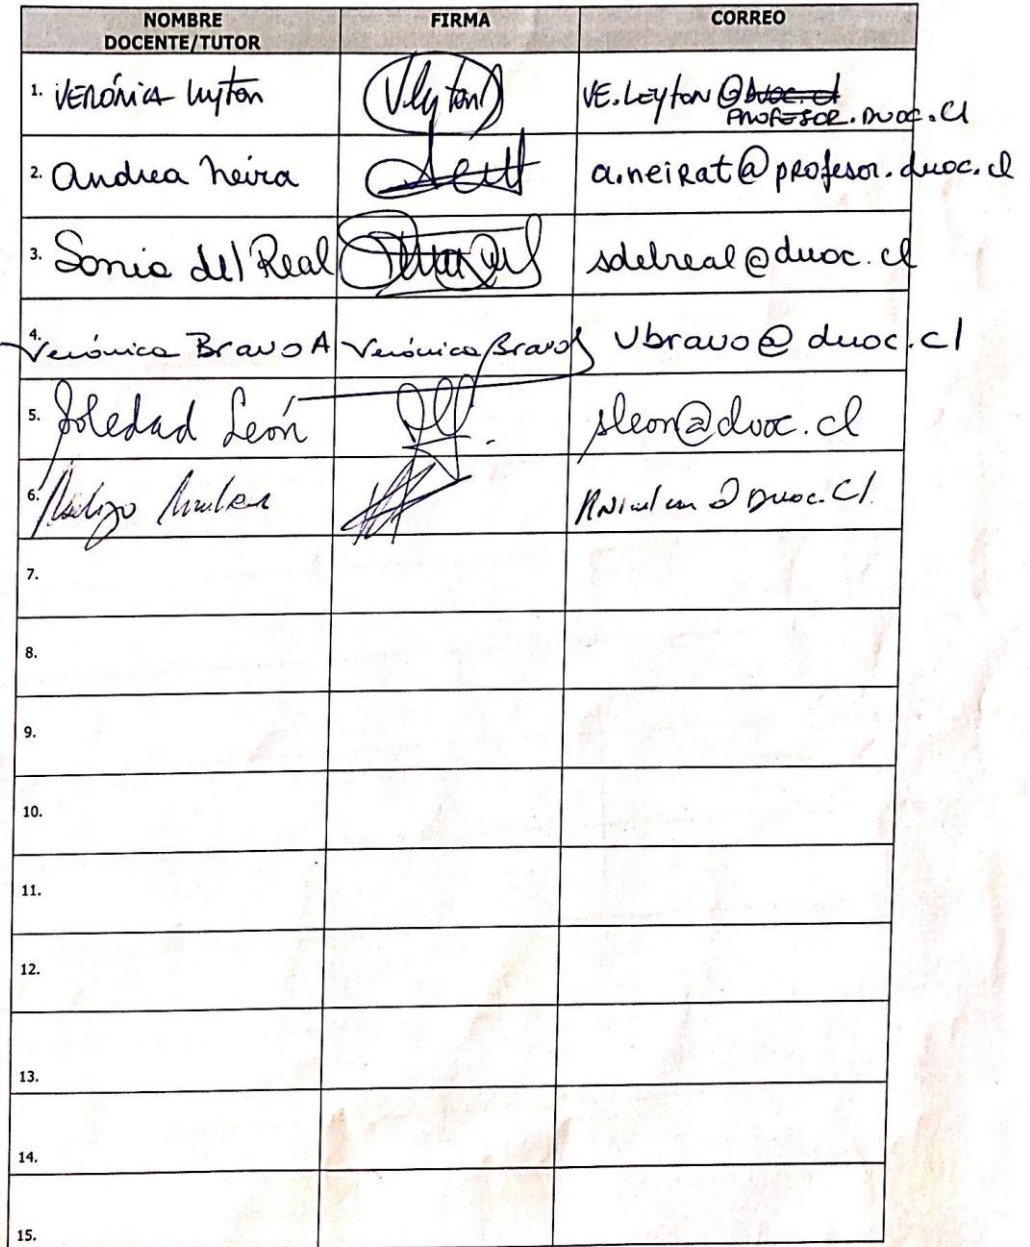 NOMBRE
DOCENTE/TUTOR
FIRMA
CORREO
1. VERÓNICA Leyton
VLeyton
VE.LEYTON @duoc.cl
PROFESOR.DUOC.Cl
2. Andrea Neira
a.neirat@profesor.duoc.cl
3. Sonia del Real
sdelreal@duoc.cl
4. Verónica Bravo A
Verónica Bravo
vbravo@duoc.cl
5. Soledad León
sleon@duoc.cl
6. Rodrigo
@ Duoc.Cl.
7.
8.
9.
10.
11.
12.
13.
14.
15.